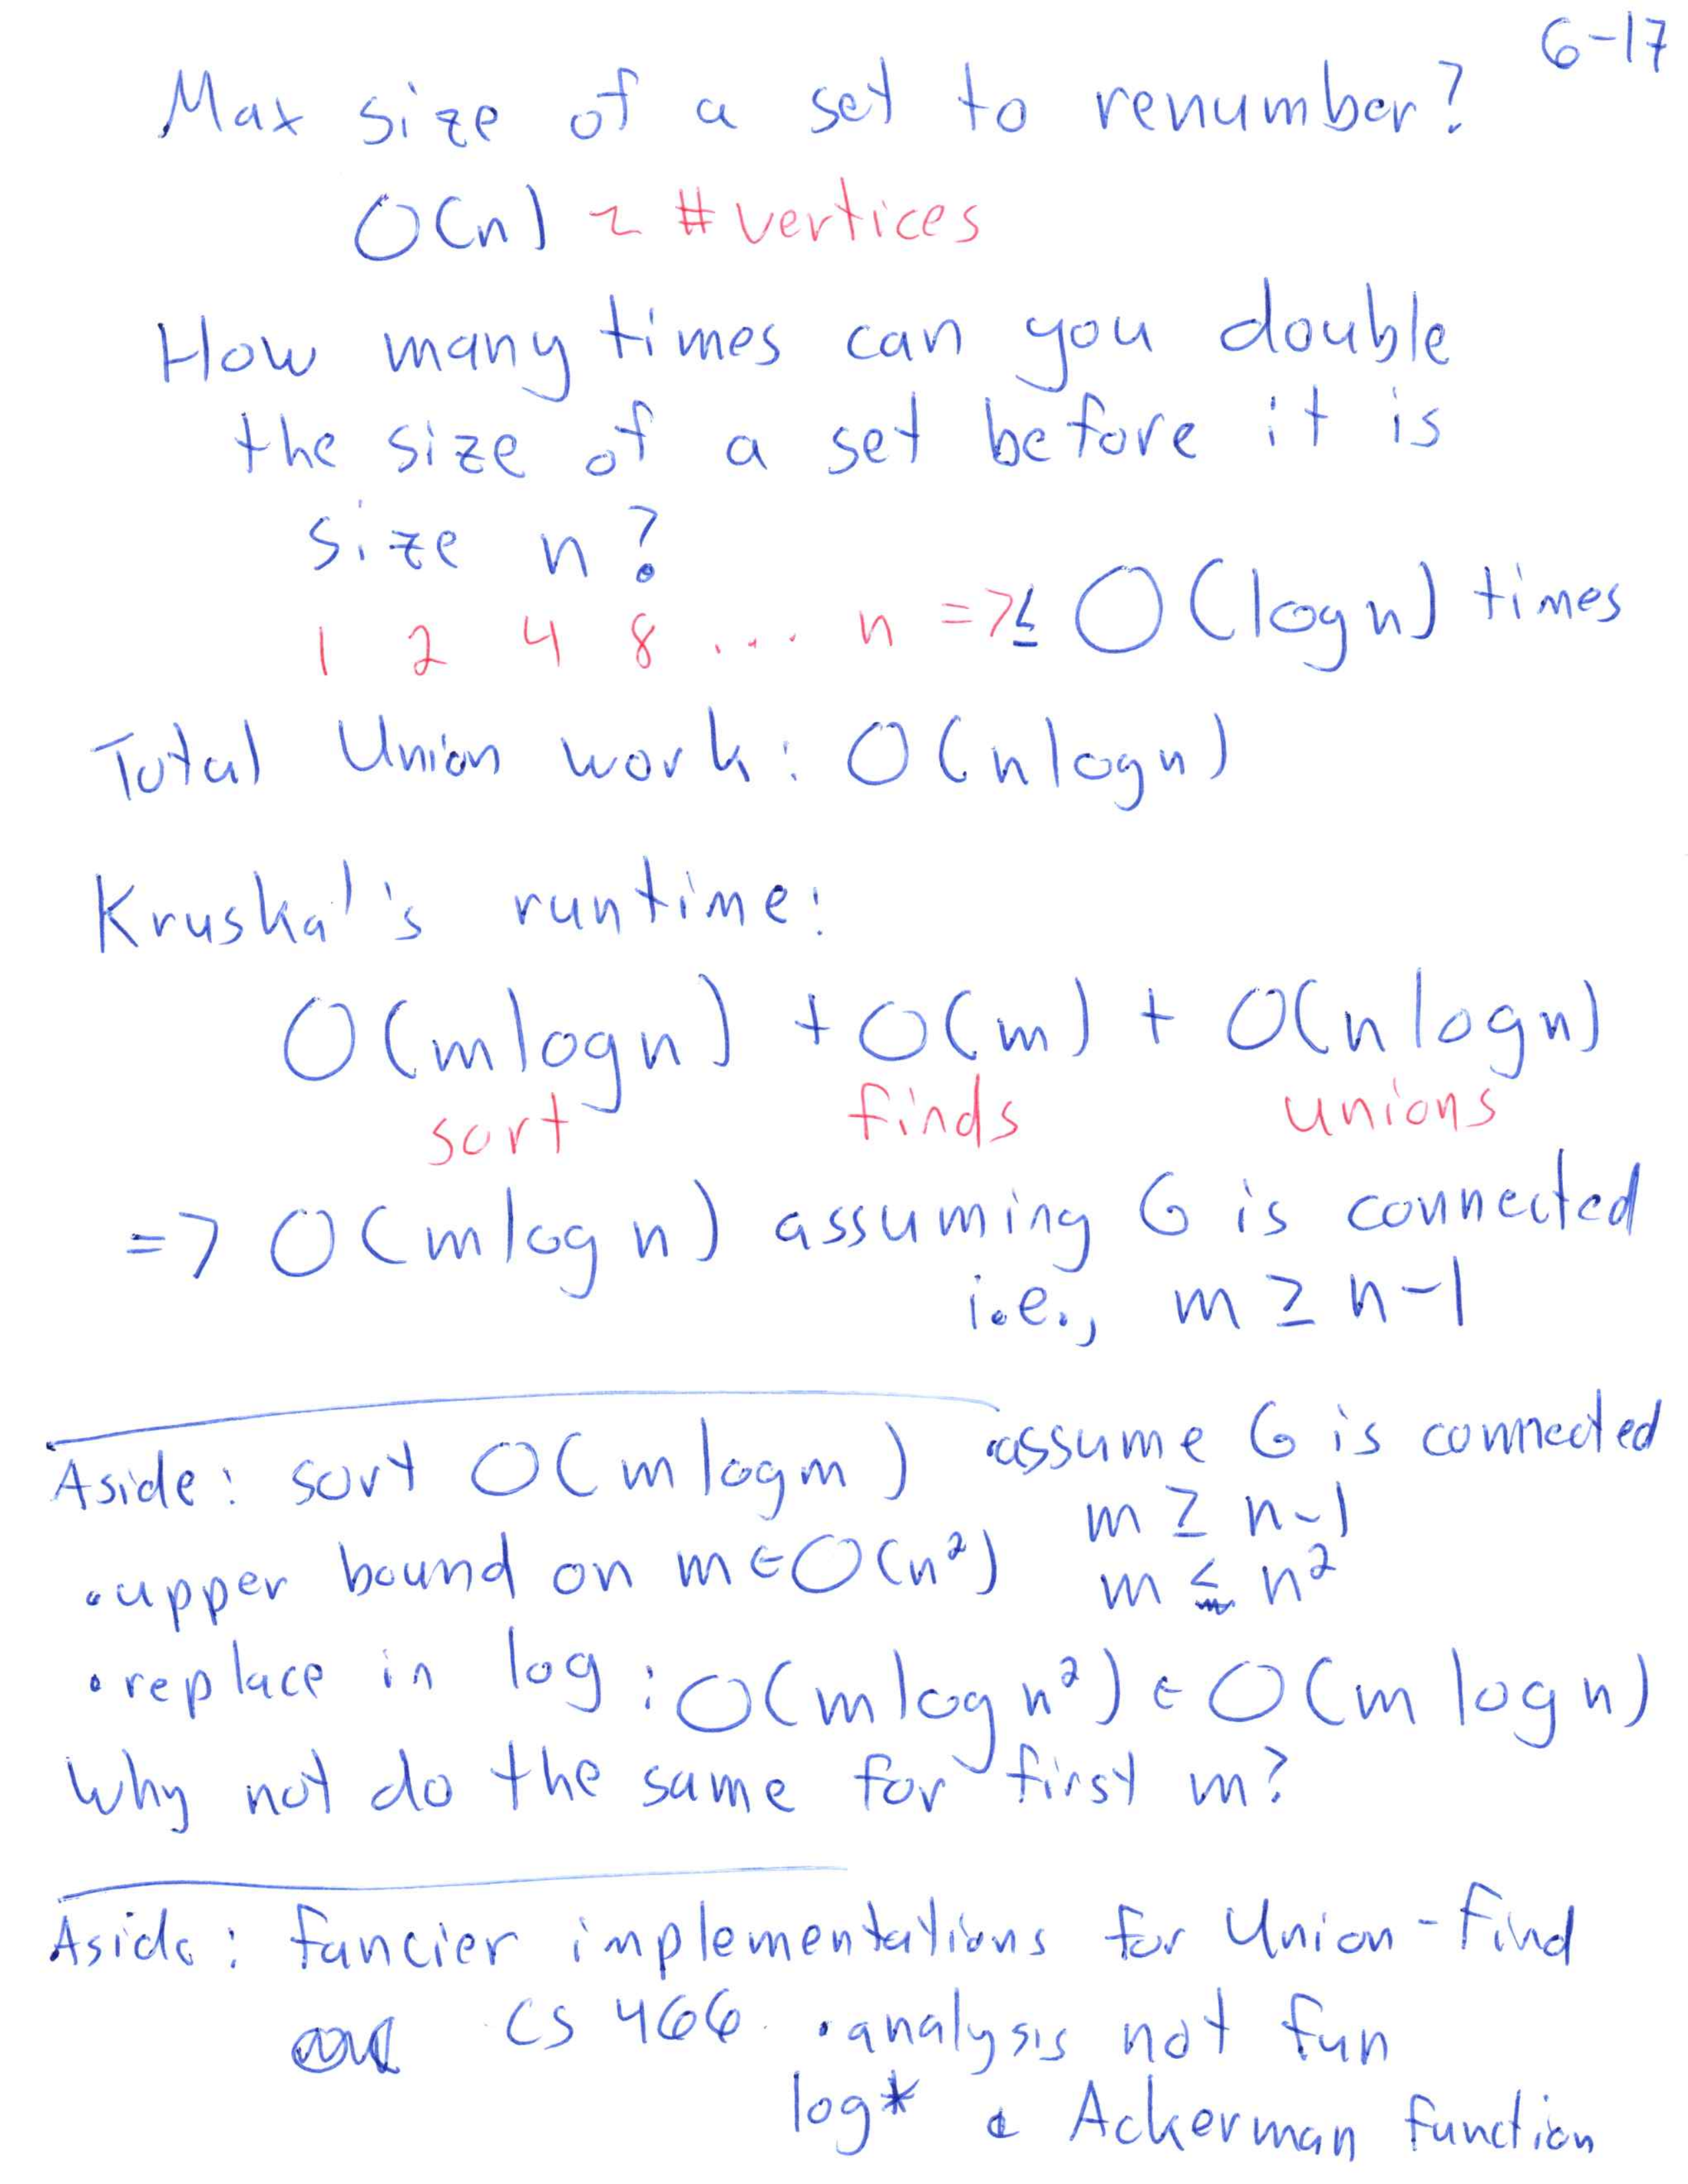 6-17
Max size of a set to renumber?
O(n) ~ #vertices
How many times can you double
the size of a set before it is
size n?
1 2 4 8 ... n => ≤ O(log n) times
Total Union work: O(n log n)
Kruskal's runtime:
O(m log n) + O(m) + O(n log n)
sort finds unions
=> O(m log n) assuming G is connected
i.e., m ≥ n-1
Aside: sort O(m log m) • assume G is connected
m ≥ n-1
• upper bound on m ∈ O(n²) m ≤ n²
• replace in log: O(m log n²) ∈ O(m log n)
Why not do the same for first m?
Aside: fancier implementations for Union-Find
CS 466 • analysis not fun
log* Ackerman function